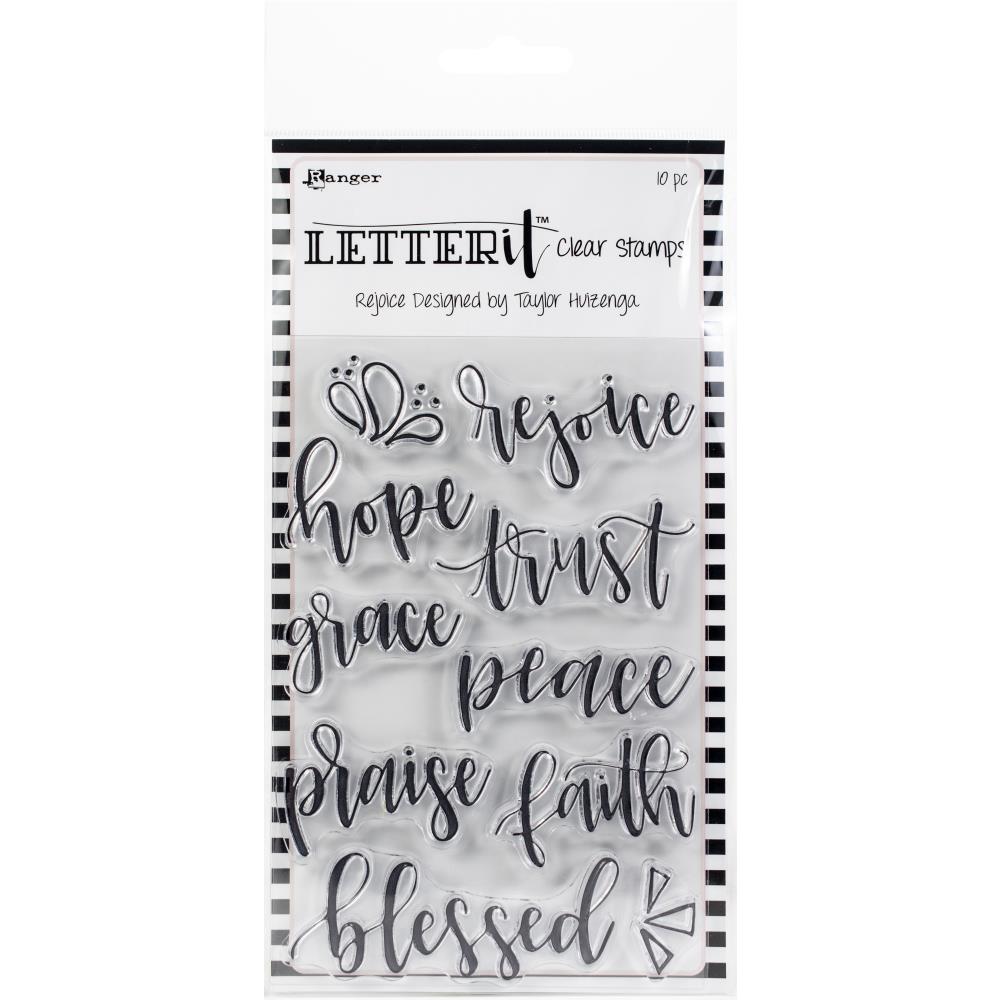 Ranger
10 pc
LETTERit™ Clear Stamps
Rejoice Designed by Taylor Huizenga
rejoice
hope
trust
grace
peace
praise
faith
blessed